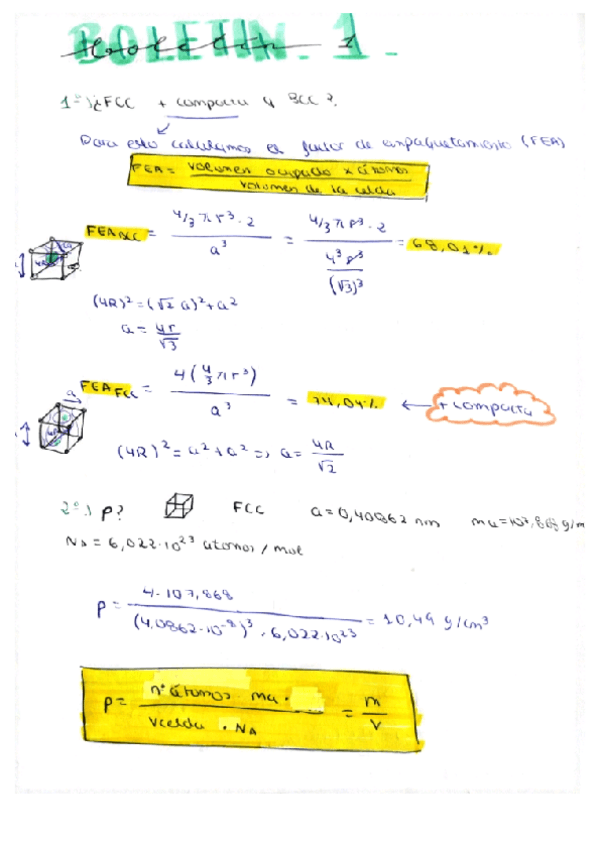 BOLETIN. 1.
1º) ¿FCC + compacta q BCC?
Para esto calculamos el factor de empaquetamiento (FEA)
FEA = volumen ocupado x átomos / volumen de la celda
FEA BCC = 4/3 π r³ · 2 / a³ = 4/3 π r³ · 2 / (4³ r³ / (√3)³) = 68,01%
(4R)² = (√2 a)² + a²
a = 4r / √3
FEA FCC = 4 (4/3 π r³) / a³ = 74,04% ← + compacta
(4R)² = a² + a² => a = 4R / √2
2º) ρ? FCC a = 0,40862 nm ma = 107,868 g/m
NA = 6,022·10²³ átomos / mol
ρ = 4 · 107,868 / (4,0862·10⁻⁸)³ · 6,022·10²³ = 10,49 g/cm³
ρ = nº átomos · ma · / Vcelda · NA = m / V